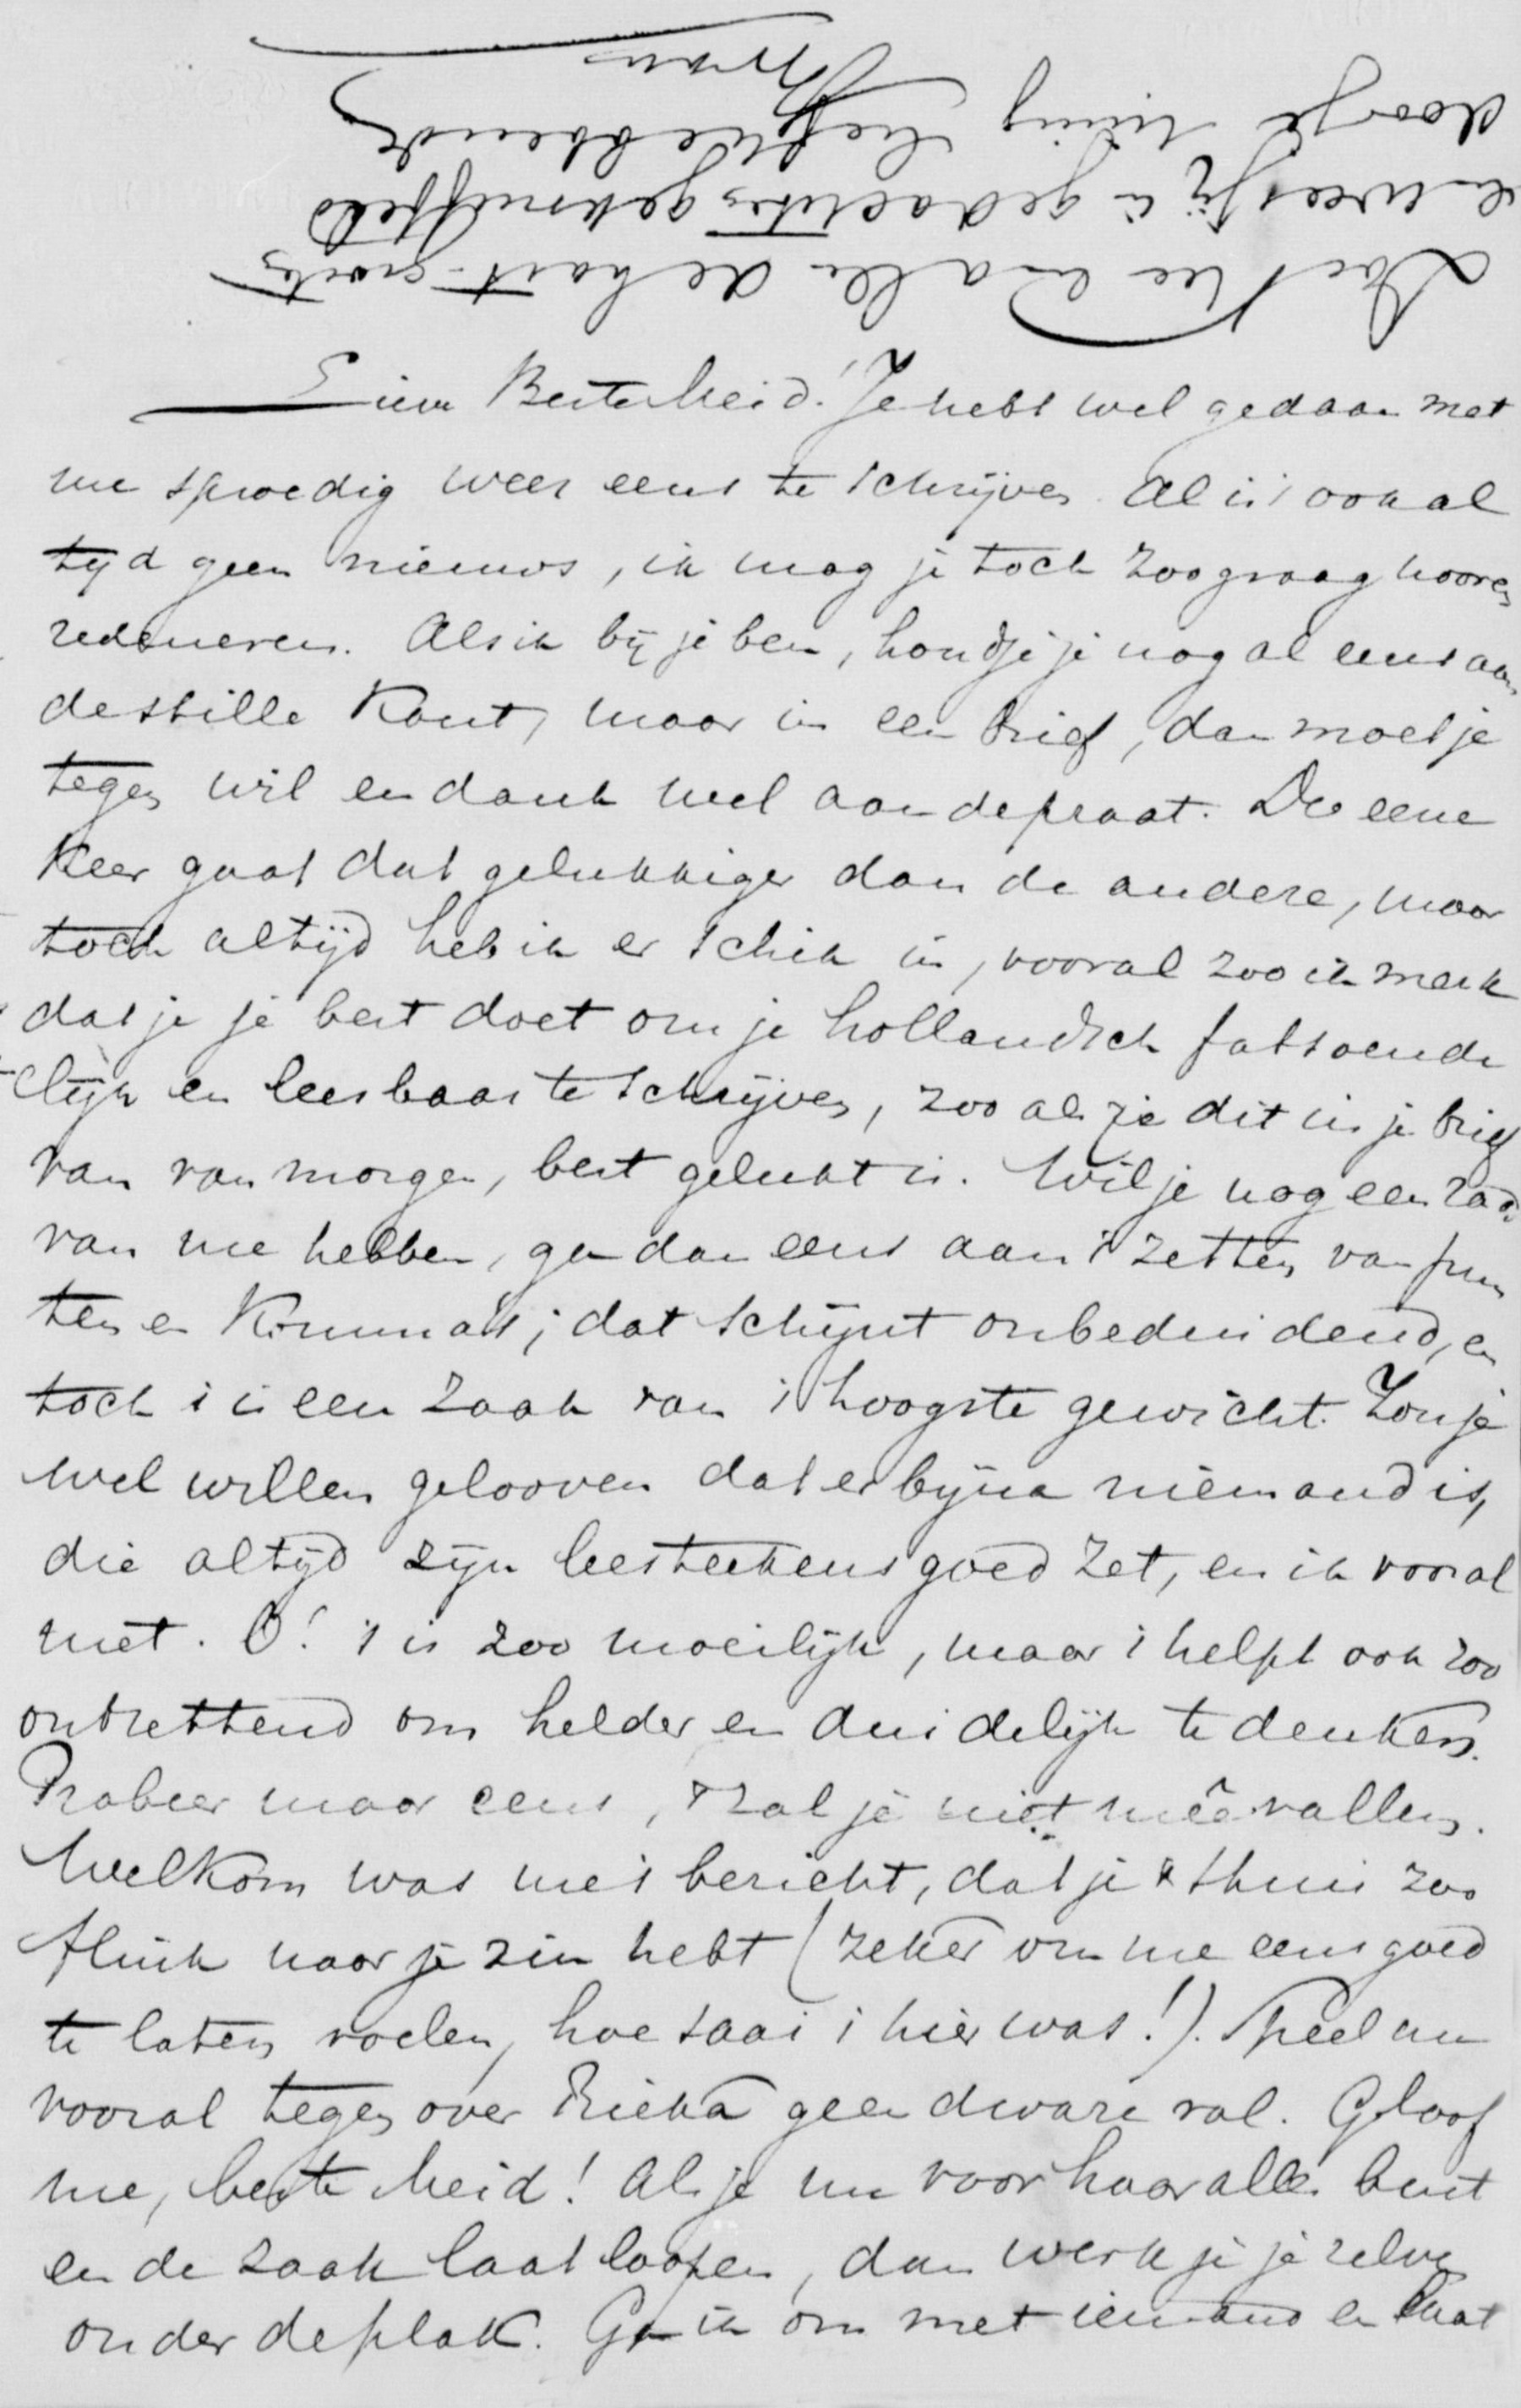 Lieve Beste Meid! Je hebt wel gedaan met
me spoedig weer eens te schrijven. Al is 't ook al
tijd geen nieuws, ik mag je toch zoo graag hooren
redeneren. Als ik bij je ben, houdt je je nog al eens aan
de stille kant, maar in een brief, dan moet je
tegen wil en dank wel aan de praat. De eene
keer gaat dat gelukkiger dan de andere, maar
toch altijd heb ik er schik in, vooral zoo ik merk
dat je je best doet om je hollandsch fatsoende
lijk en leesbaar te schrijven, zooals je dit in je brief
van van morgen, best gelukt is. Wil je nog een raad
van me hebben, ga dan eens aan 't zetten van pun
ten en komma's; dat schijnt onbeduidend, en
toch 't is een zaak van 't hoogste gewicht. Zou je
wel willen gelooven dat er bijna niemand is,
die altijd zijn leesteekens goed zet, en ik vooral
niet. O! 't is zoo moeilijk, maar 't helpt ook zoo
ontzettend om helder en duidelijk te denken.
Probeer maar eens, 't zal je niet meêvallen.
Welkom was me 't bericht, dat je 't thuis zoo
flink naar je zin hebt (zeker om me eens goed
te laten voelen, hoe saai 't hier was!). Speel nu
vooral tegenover Rieka geen dwaze rol. Geloof
me, beste Meid! Als je nu voor haar alles bent
en de zaak laat loopen, dan werk je je zelve
onder de plak. Ga ik om met iemand en laat
Doet Kee en allen de hart-groeten
en wees jij in gedachten geknuffeld
door je innig liefhebbende
Frans